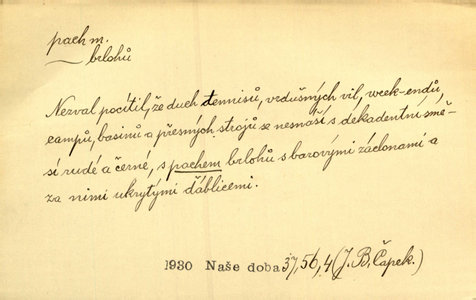 pach m.
brlohů
Nezval pocítil, že duch tennisů, vzdušných vil, week-endů,
campů, basinů a přesných strojů se nesnáší s dekadentní smě-
sí rudé a černé, s pachem brlohů s barovými záclonami a
za nimi ukrytými ďáblicemi.
1930 Naše doba 37, 56, 4 (J. B. Čapek.)